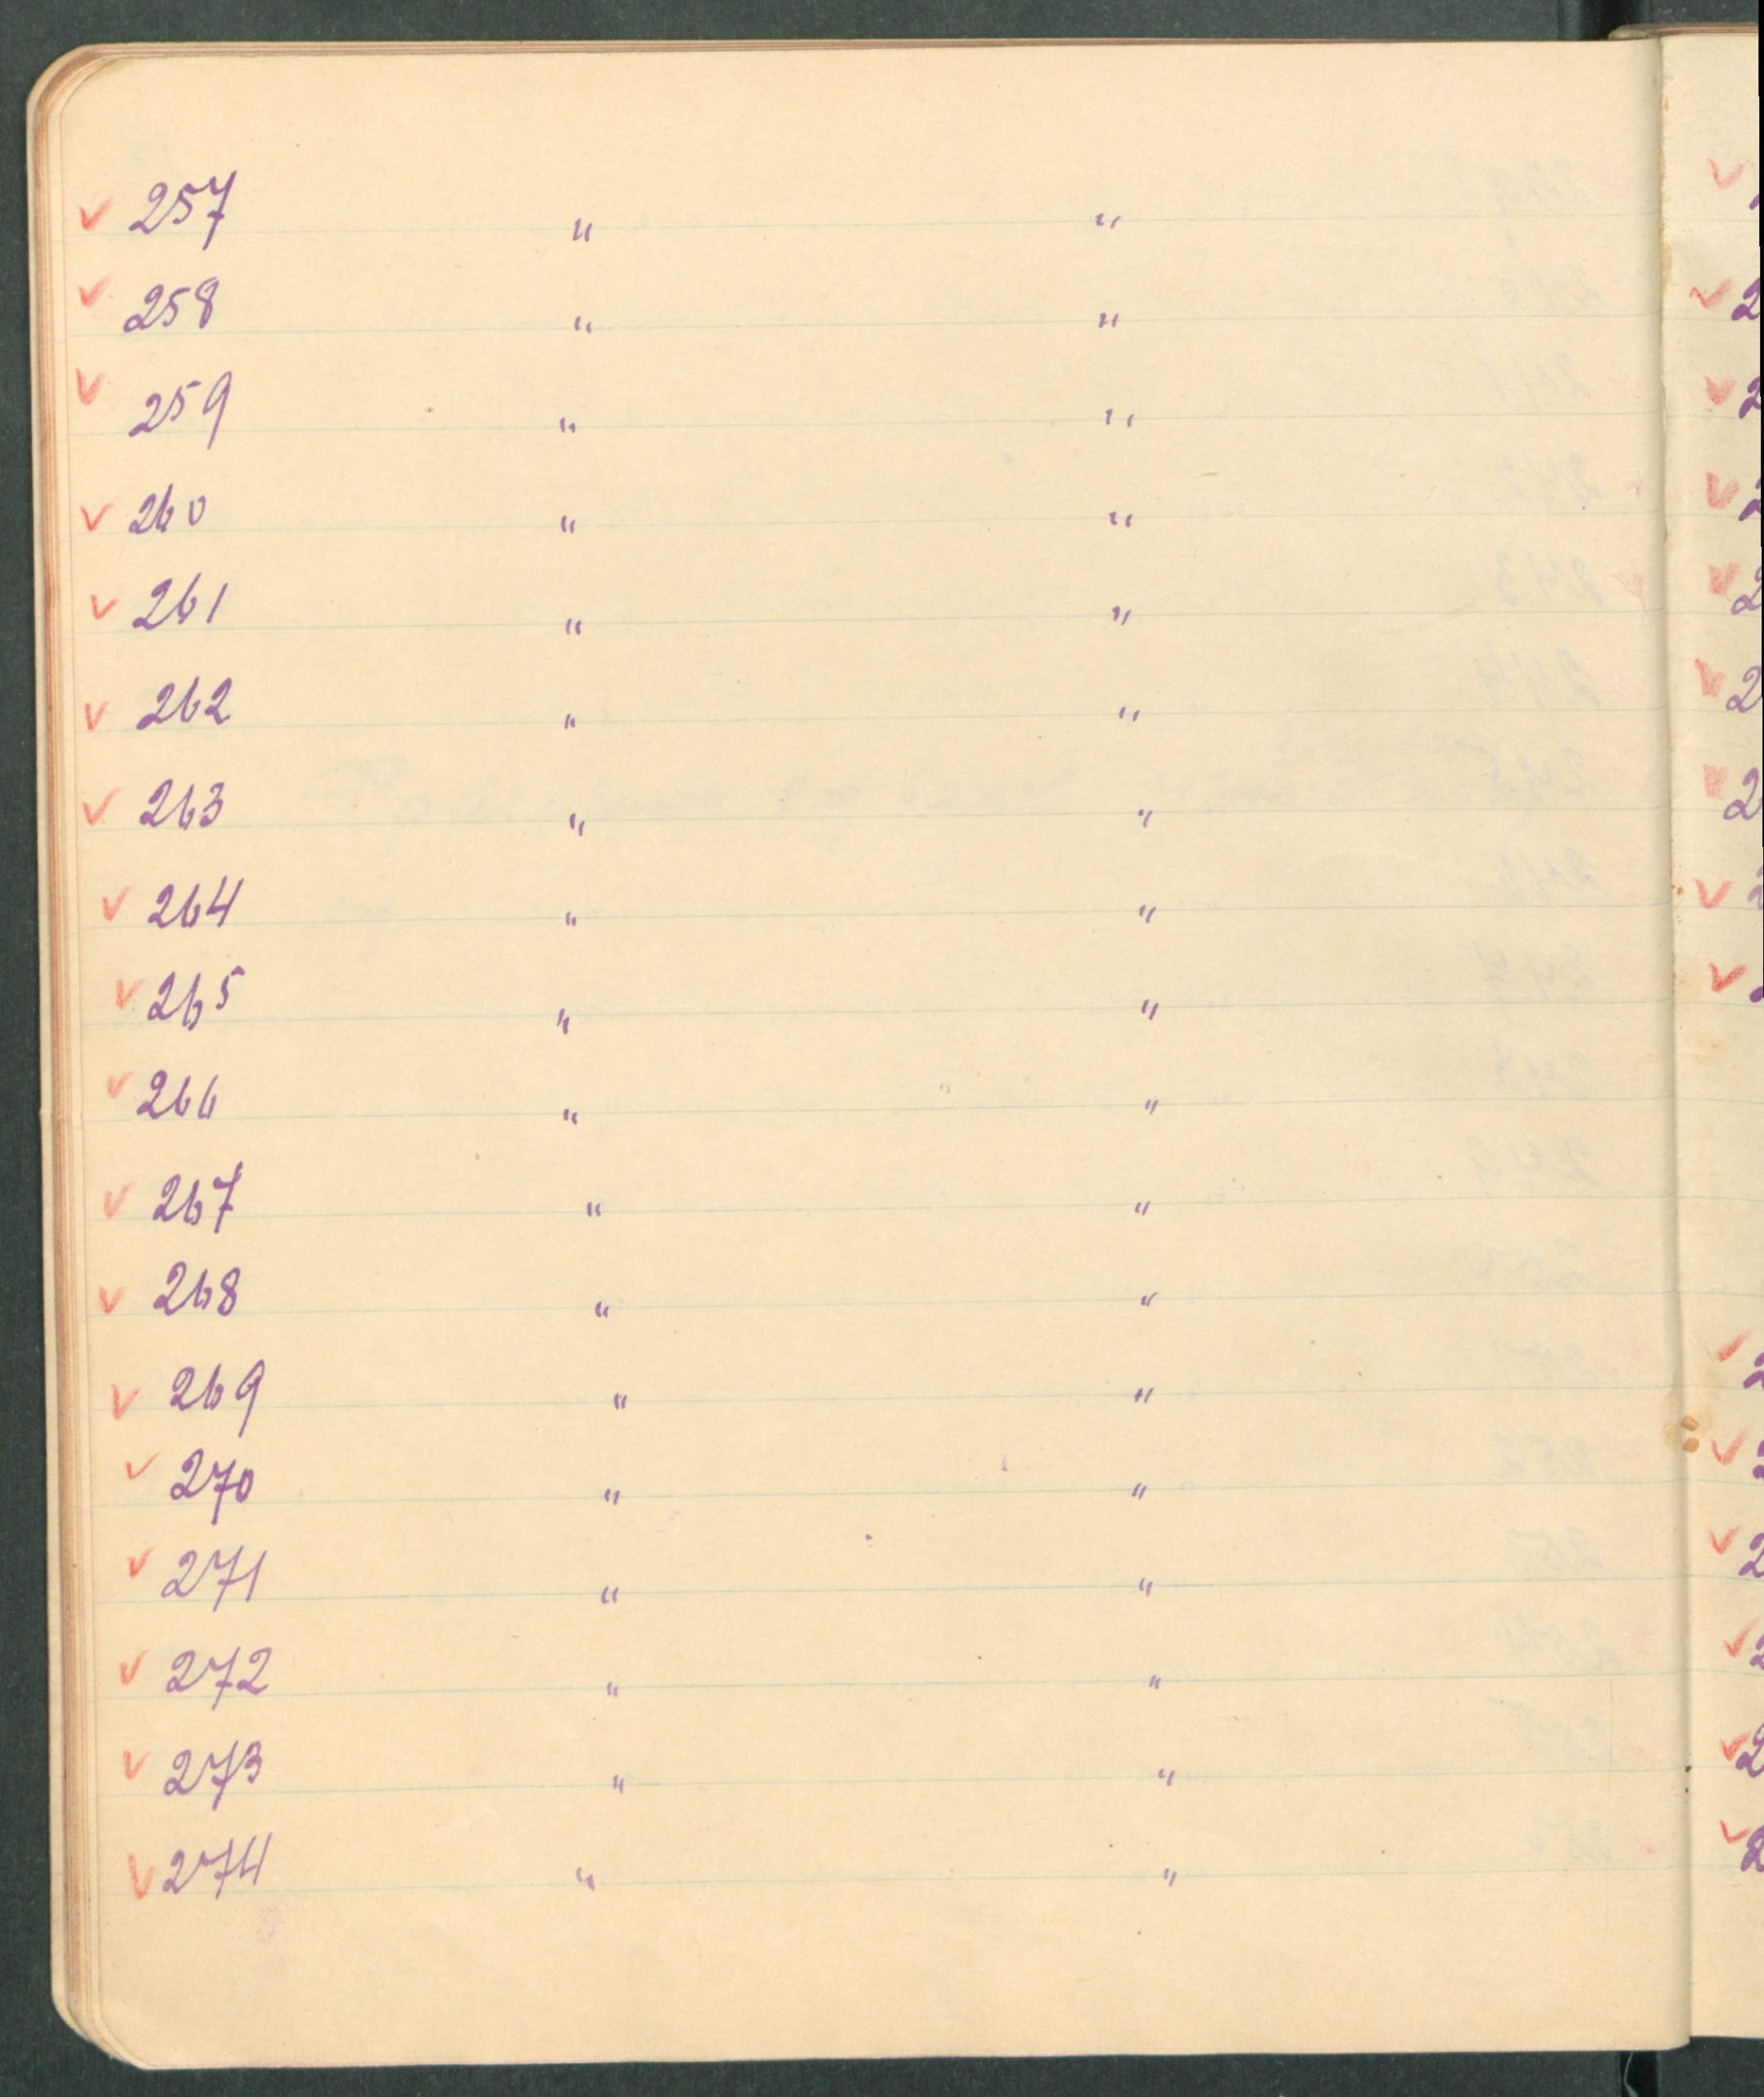 ✓ 257 " "
✓ 258 " "
✓ 259 " "
✓ 260 " "
✓ 261 " "
✓ 262 " "
✓ 263 " "
✓ 264 " "
✓ 265 " "
✓ 266 " "
✓ 267 " "
✓ 268 " "
✓ 269 " "
✓ 270 " "
✓ 271 " "
✓ 272 " "
✓ 273 " "
✓ 274 " "